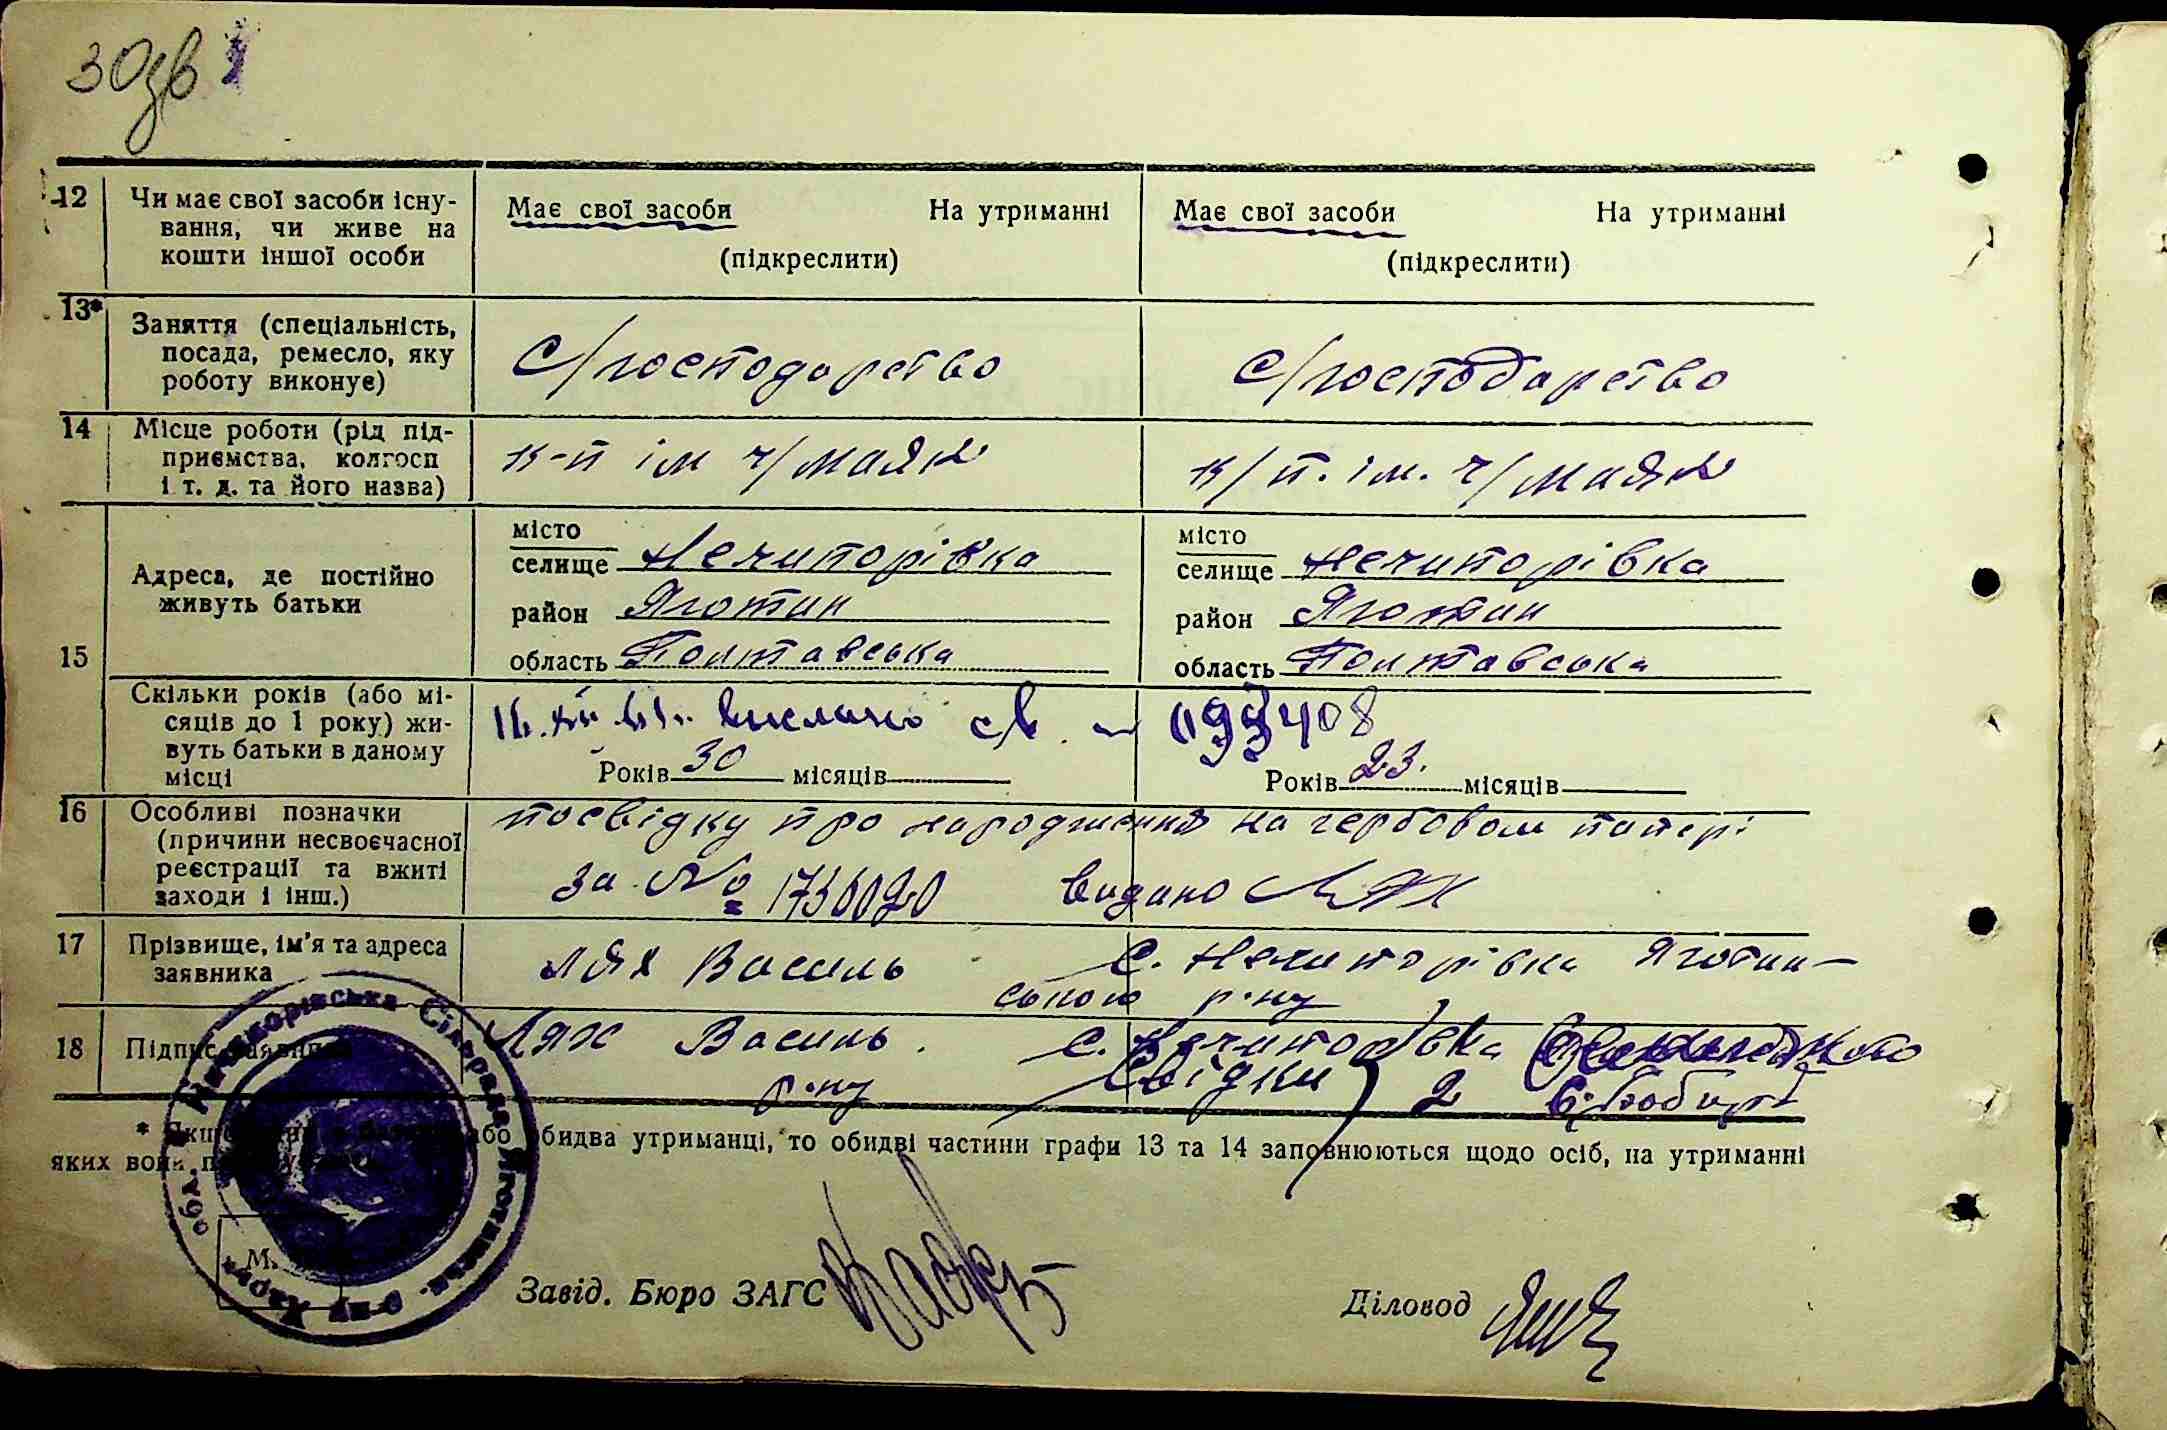 30зв
12 Чи має свої засоби існу-
вання, чи живе на
кошти іншої особи
Має свої засоби На утриманні
(підкреслити)
Має свої засоби На утриманні
(підкреслити)
13* Заняття (спеціальність,
посада, ремесло, яку
роботу виконує)
С/господарство
С/господарство
14 Місце роботи (рід під-
приємства, колгосп
і т. д. та його назва)
к-п ім ч/маяк
к/п. ім. ч/маяк
15 Адреса, де постійно
живуть батьки
місто
селище Нечипорівка
район Яготин
область Полтавська
місто
селище Нечипорівка
район Яготин
область Полтавська
Скільки років (або мі-
сяців до 1 року) жи-
вуть батьки в даному
місці
вислано с/в
Років 30 місяців
Років 23. місяців
16 Особливі позначки
(причини несвоєчасної
реєстрації та вжиті
заходи і інш.)
посвідку про народження на гербовом папері
за № видано
17 Прізвище, ім'я та адреса
заявника
Лях Василь с. Нечипорівка Яготин-
ського р-ну
18 Підпис заявника
Лях Василь. с. Нечипорівка
р-ну Свідки 2
* або обидва утриманці, то обидві частини графи 13 та 14 заповнюються щодо осіб, на утриманні
яких вони
Нечипорівська Сільрада Яготинськ. р-ну Харк. округ
М.
Завід. Бюро ЗАГС
Діловод